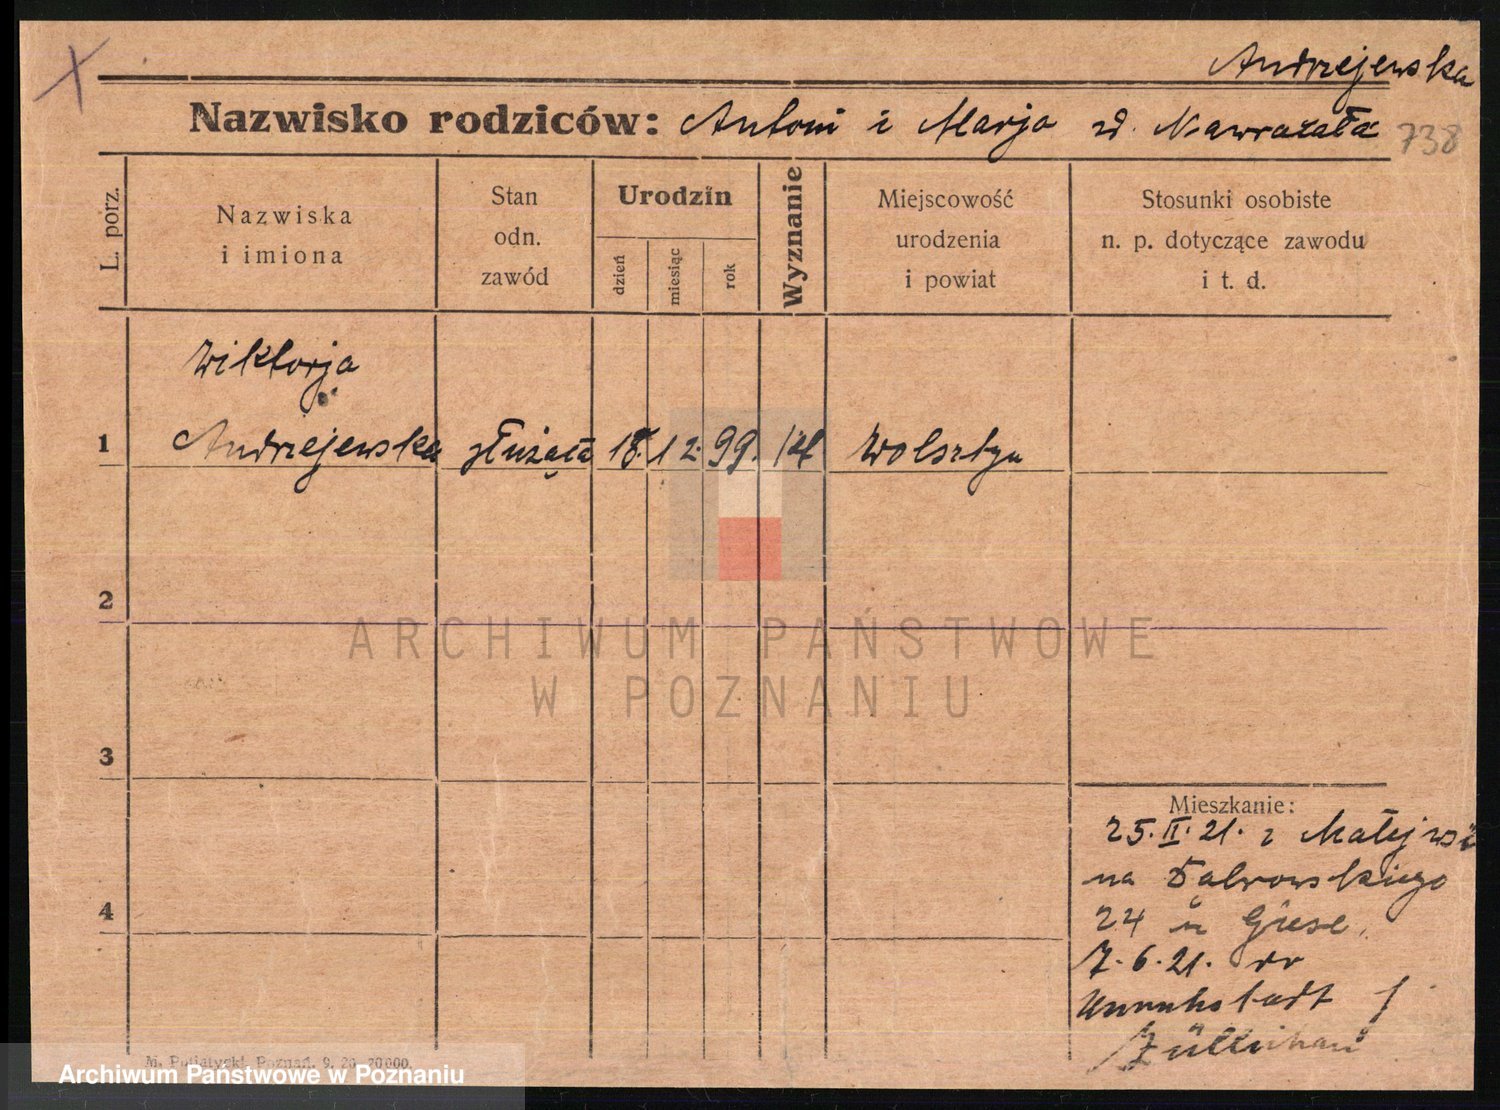 Andrzejewska
Nazwisko rodziców: Antoni i Marja zd. Nawrazała 738
L. porz.
Nazwiska
i imiona
Stan
odn.
zawód
Urodzin
dzień
miesiąc
rok
Wyznanie
Miejscowość
urodzenia
i powiat
Stosunki osobiste
n. p. dotyczące zawodu
i t. d.
Wiktorja
1 Andrzejewska służąca 18. 12. 99. kat Wolsztyn
2
3
4
Mieszkanie:
25.II.21. z
na Dabrowskiego
24 u Giese.
7.6.21. do
Unruhstadt /
Züllichau
M. Putiatycki, Poznań. 9. 20 20000
ARCHIWUM PAŃSTWOWE
W POZNANIU
Archiwum Państwowe w Poznaniu